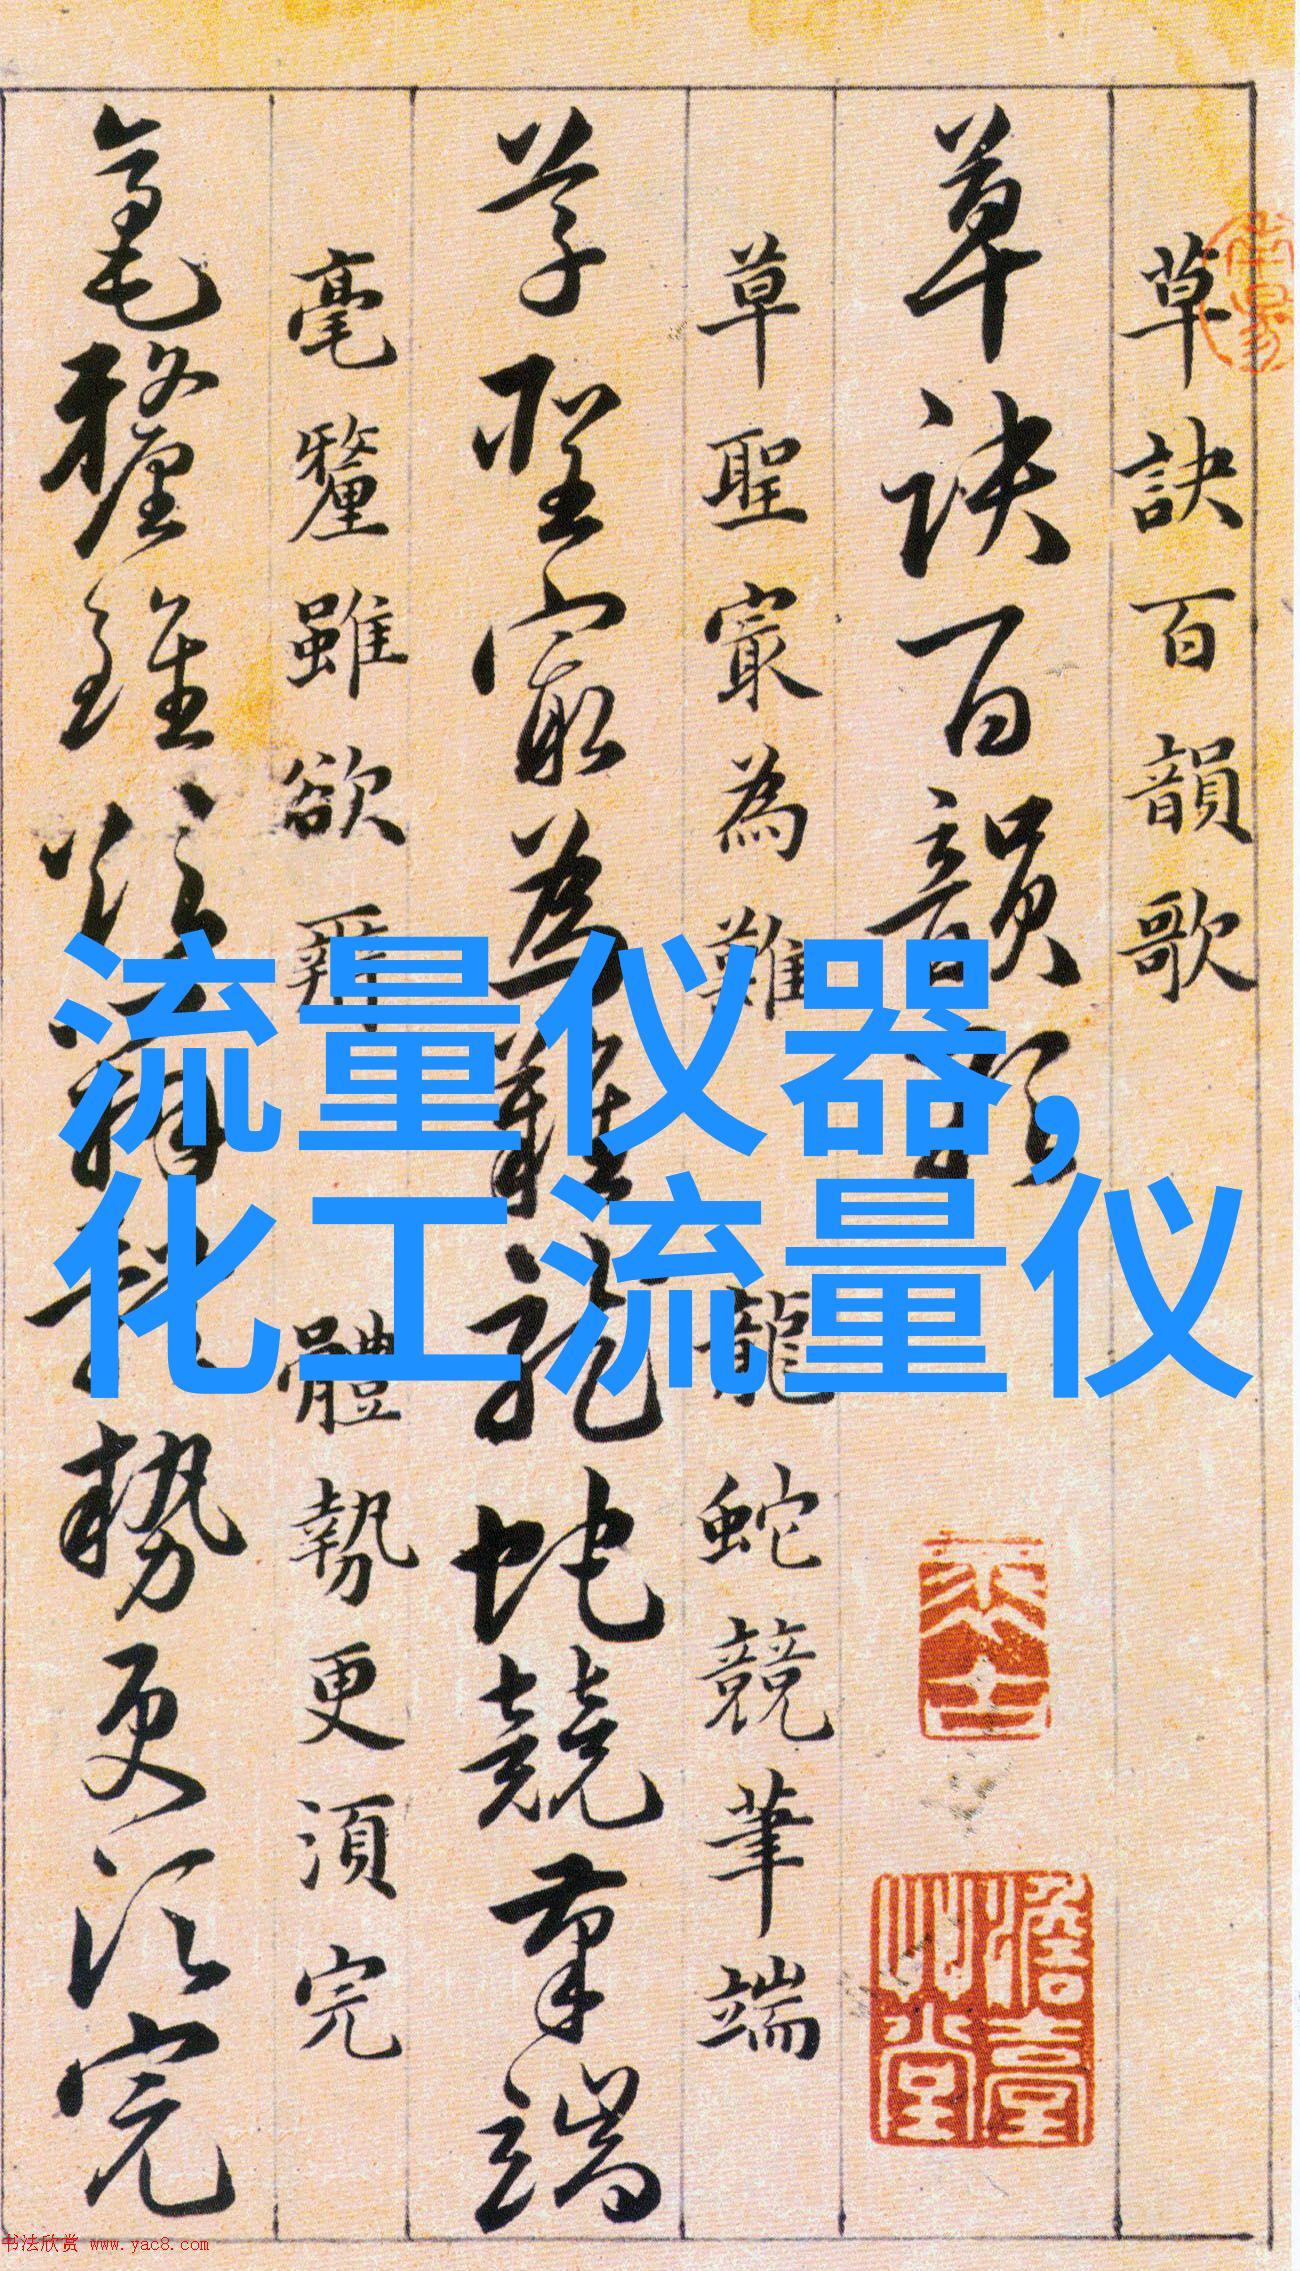 草訣百韻歌
草訣百韻歌
草聖宷為難龍蛇競筆端
草聖宷為難龍蛇競筆端
毫釐雖欲辨體勢更須完
毫釐雖欲辨體勢更須完
流量仪器,
化工流量仪
书法欣赏 www.yac8.com